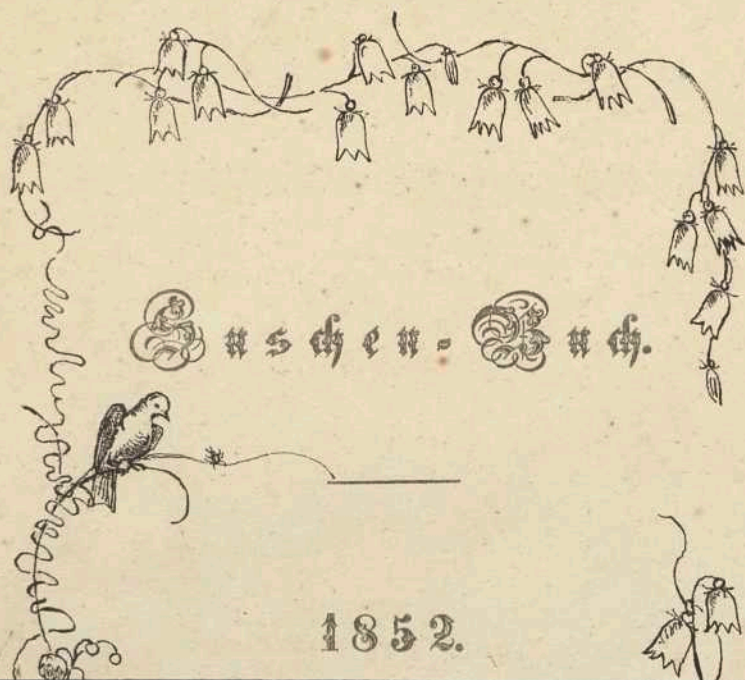 Taschen-Buch.
1852.